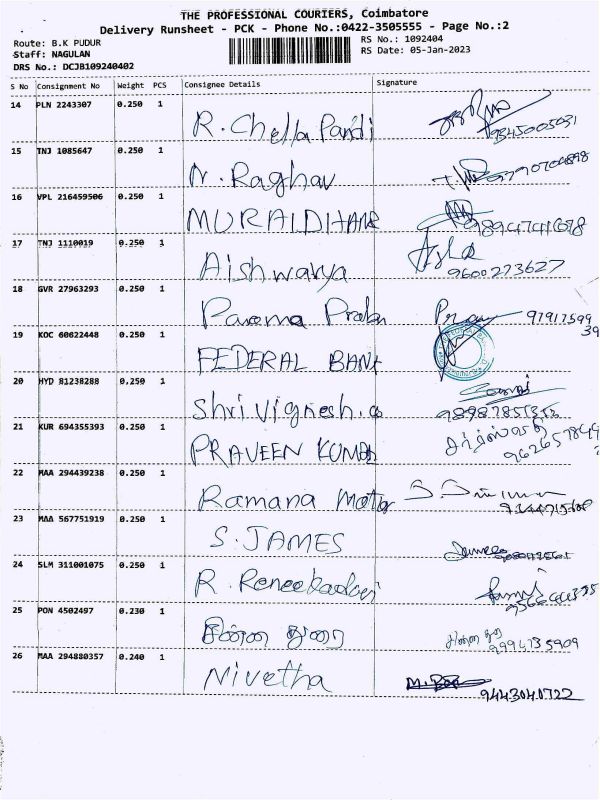 THE PROFESSIONAL COURIERS, Coimbatore
Delivery Runsheet - PCK - Phone No.:0422-3505555 - Page No.:2
Route: B.K PUDUR
RS No.: 1092404
Staff: NAGULAN
RS Date: 05-Jan-2023
DRS No.: DCJB109240402
S No Consignment No Weight PCS Consignee Details Signature
14 PLN 2243307 0.250 1 R. Chella Pandi 9345005031
15 TNJ 1085647 0.250 1 N. Raghav
16 VPL 216459506 0.250 1 MURALDHARA
17 TNJ 1110019 0.250 1 Aishwarya Asha 9600273627
18 GVR 27963293 0.250 1 Parama Prabu
19 KOC 60622448 0.250 1 FEDERAL BANK
20 HYD 81238288 0.250 1 Shri Vignesh.
21 KUR 694355393 0.250 1 PRAVEEN KUMAR
22 MAA 294439238 1 0.250 Ramana Motor
23 MAA 567751919 0.250 1 S. JAMES
24 SLM 311001075 0.250 1 R.
25 PON 4502497 0.230 1 சின்ன துரை சின்ன துரை 9994735909
26 MAA 294880357 0.240 1 Nivetha 9443040722